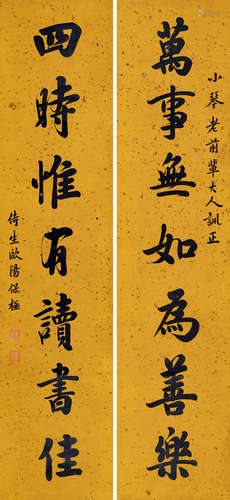 小琴老前輩大人訓正
萬事無如為善樂
四時惟有讀書佳
侍生歐陽保極